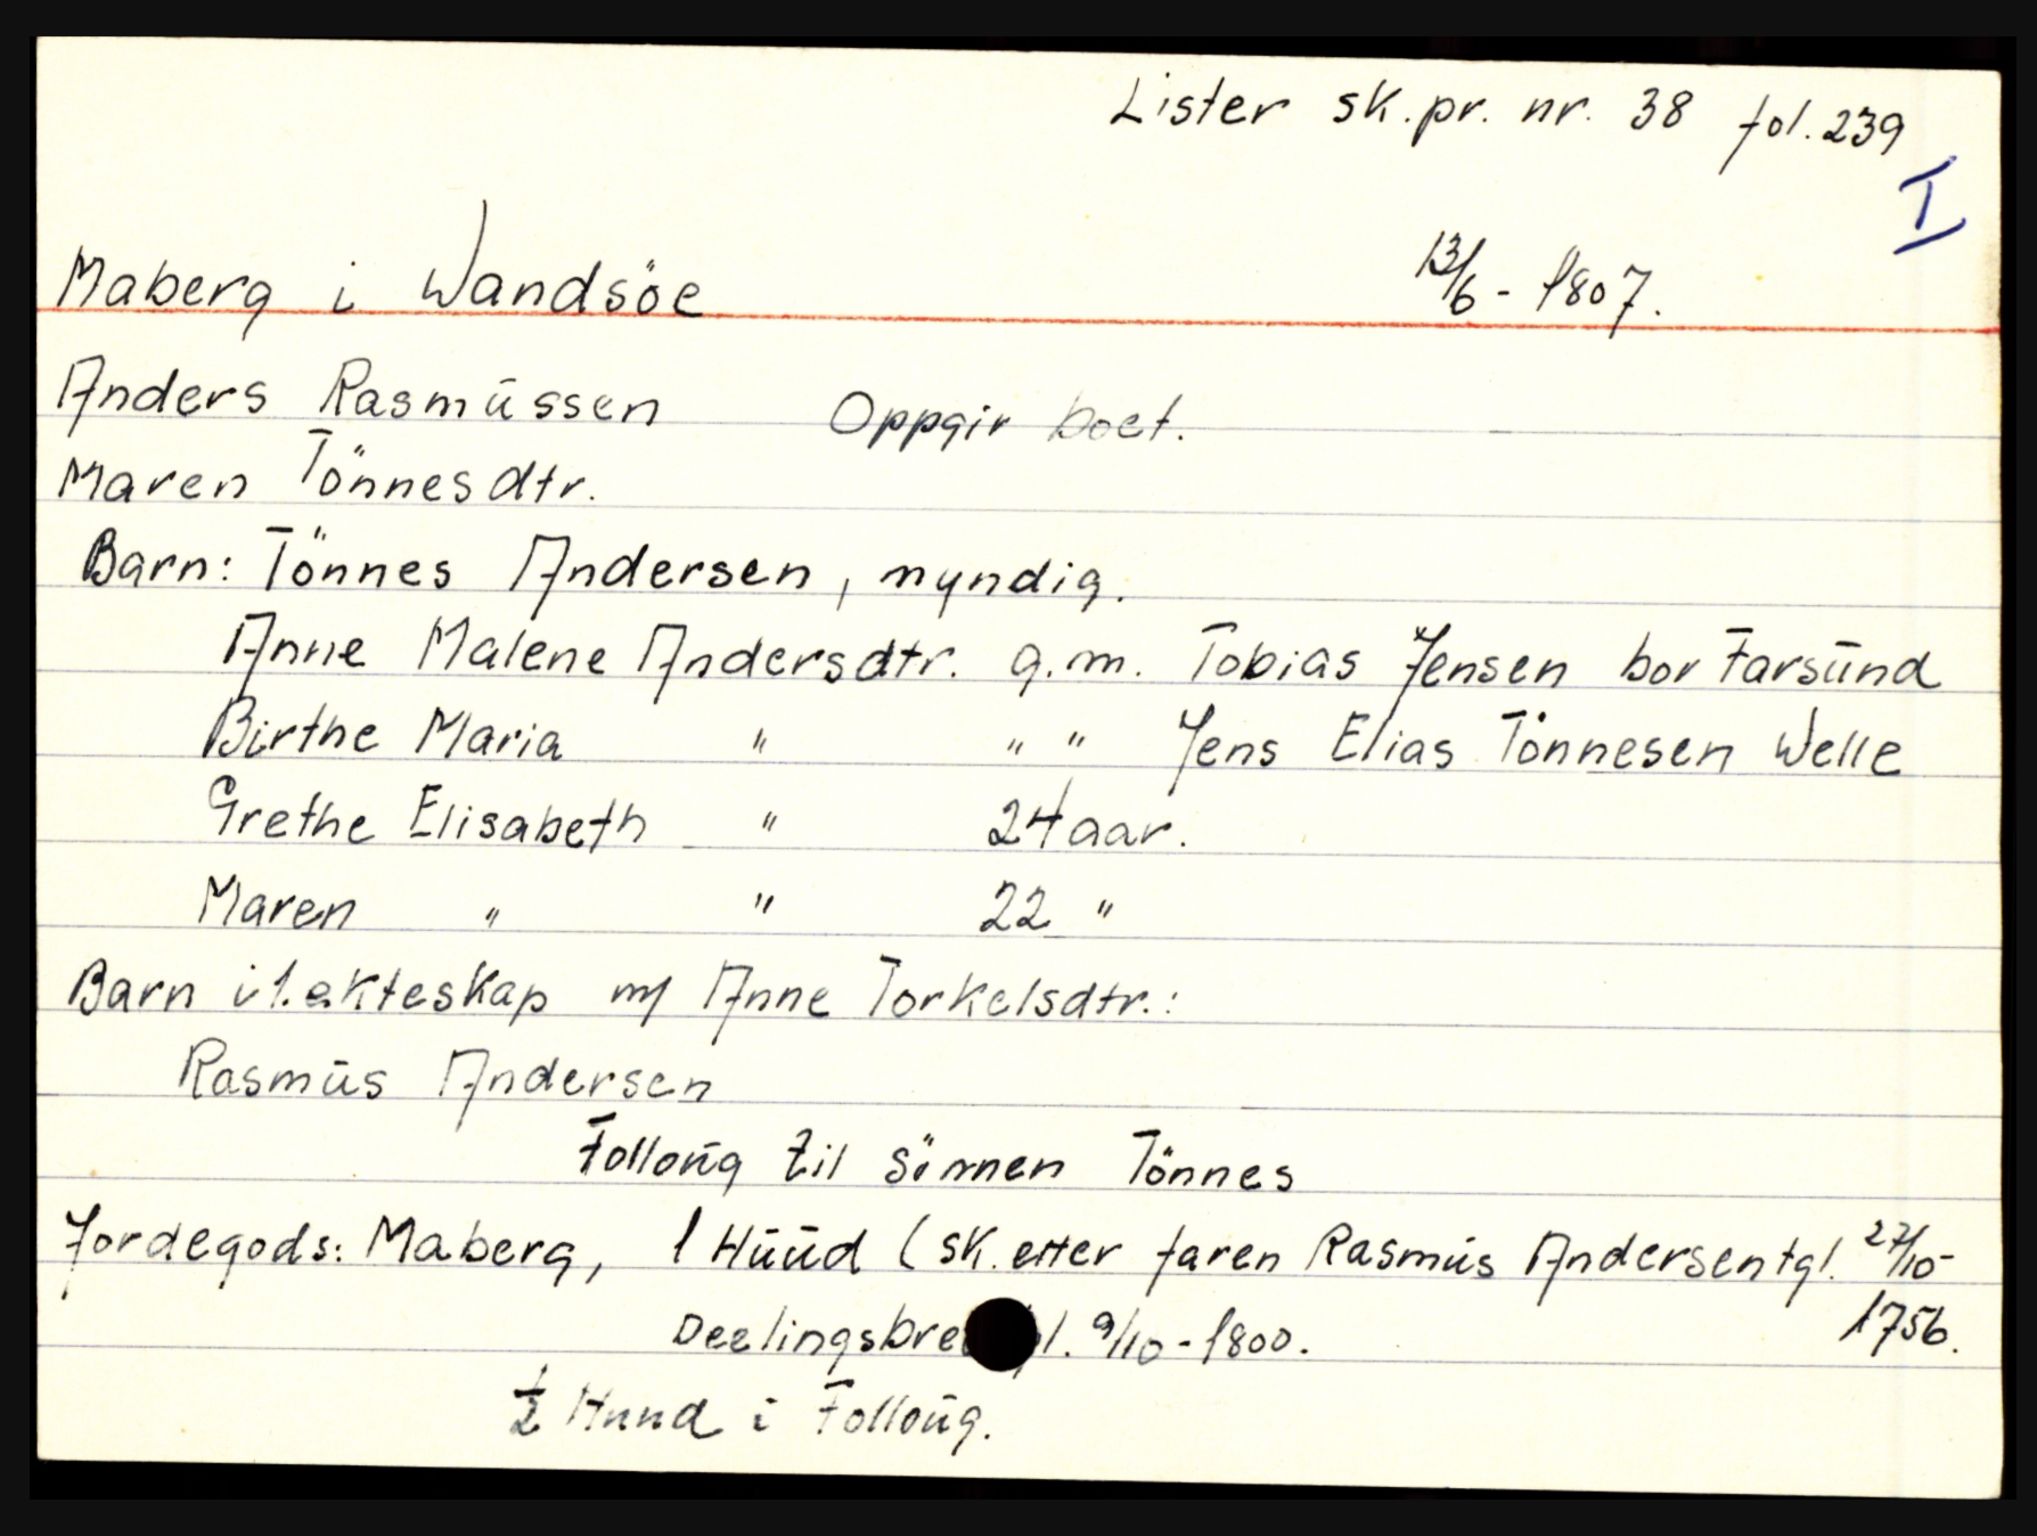 Lister sk.pr. nr. 38 fol. 239
I
Maberg i Wandsöe 13/6 - 1807.
Anders Rasmūssen Oppgir boet.
Maren Tönnesdtr.
Barn: Tönnes Andersen, myndig.
Anne Malene Andersdtr. g.m. Tobias Jensen bor Farsūnd
Birthe Maria " " " Jens Elias Tönnesen Welle
Grethe Elisabeth " 24 aar.
Maren " " 22 "
Barn i 1. ekteskap m/ Anne Torkelsdtr.:
Rasmūs Andersen
Folloūg til sönnen Tönnes
Jordegods: Maberg, 1 Hūūd (sk. etter faren Rasmūs Andersen tgl. 27/10-
1756.
Deelingsbre l. 9/10 - 1800.
1/2 Huud i Folloūg.